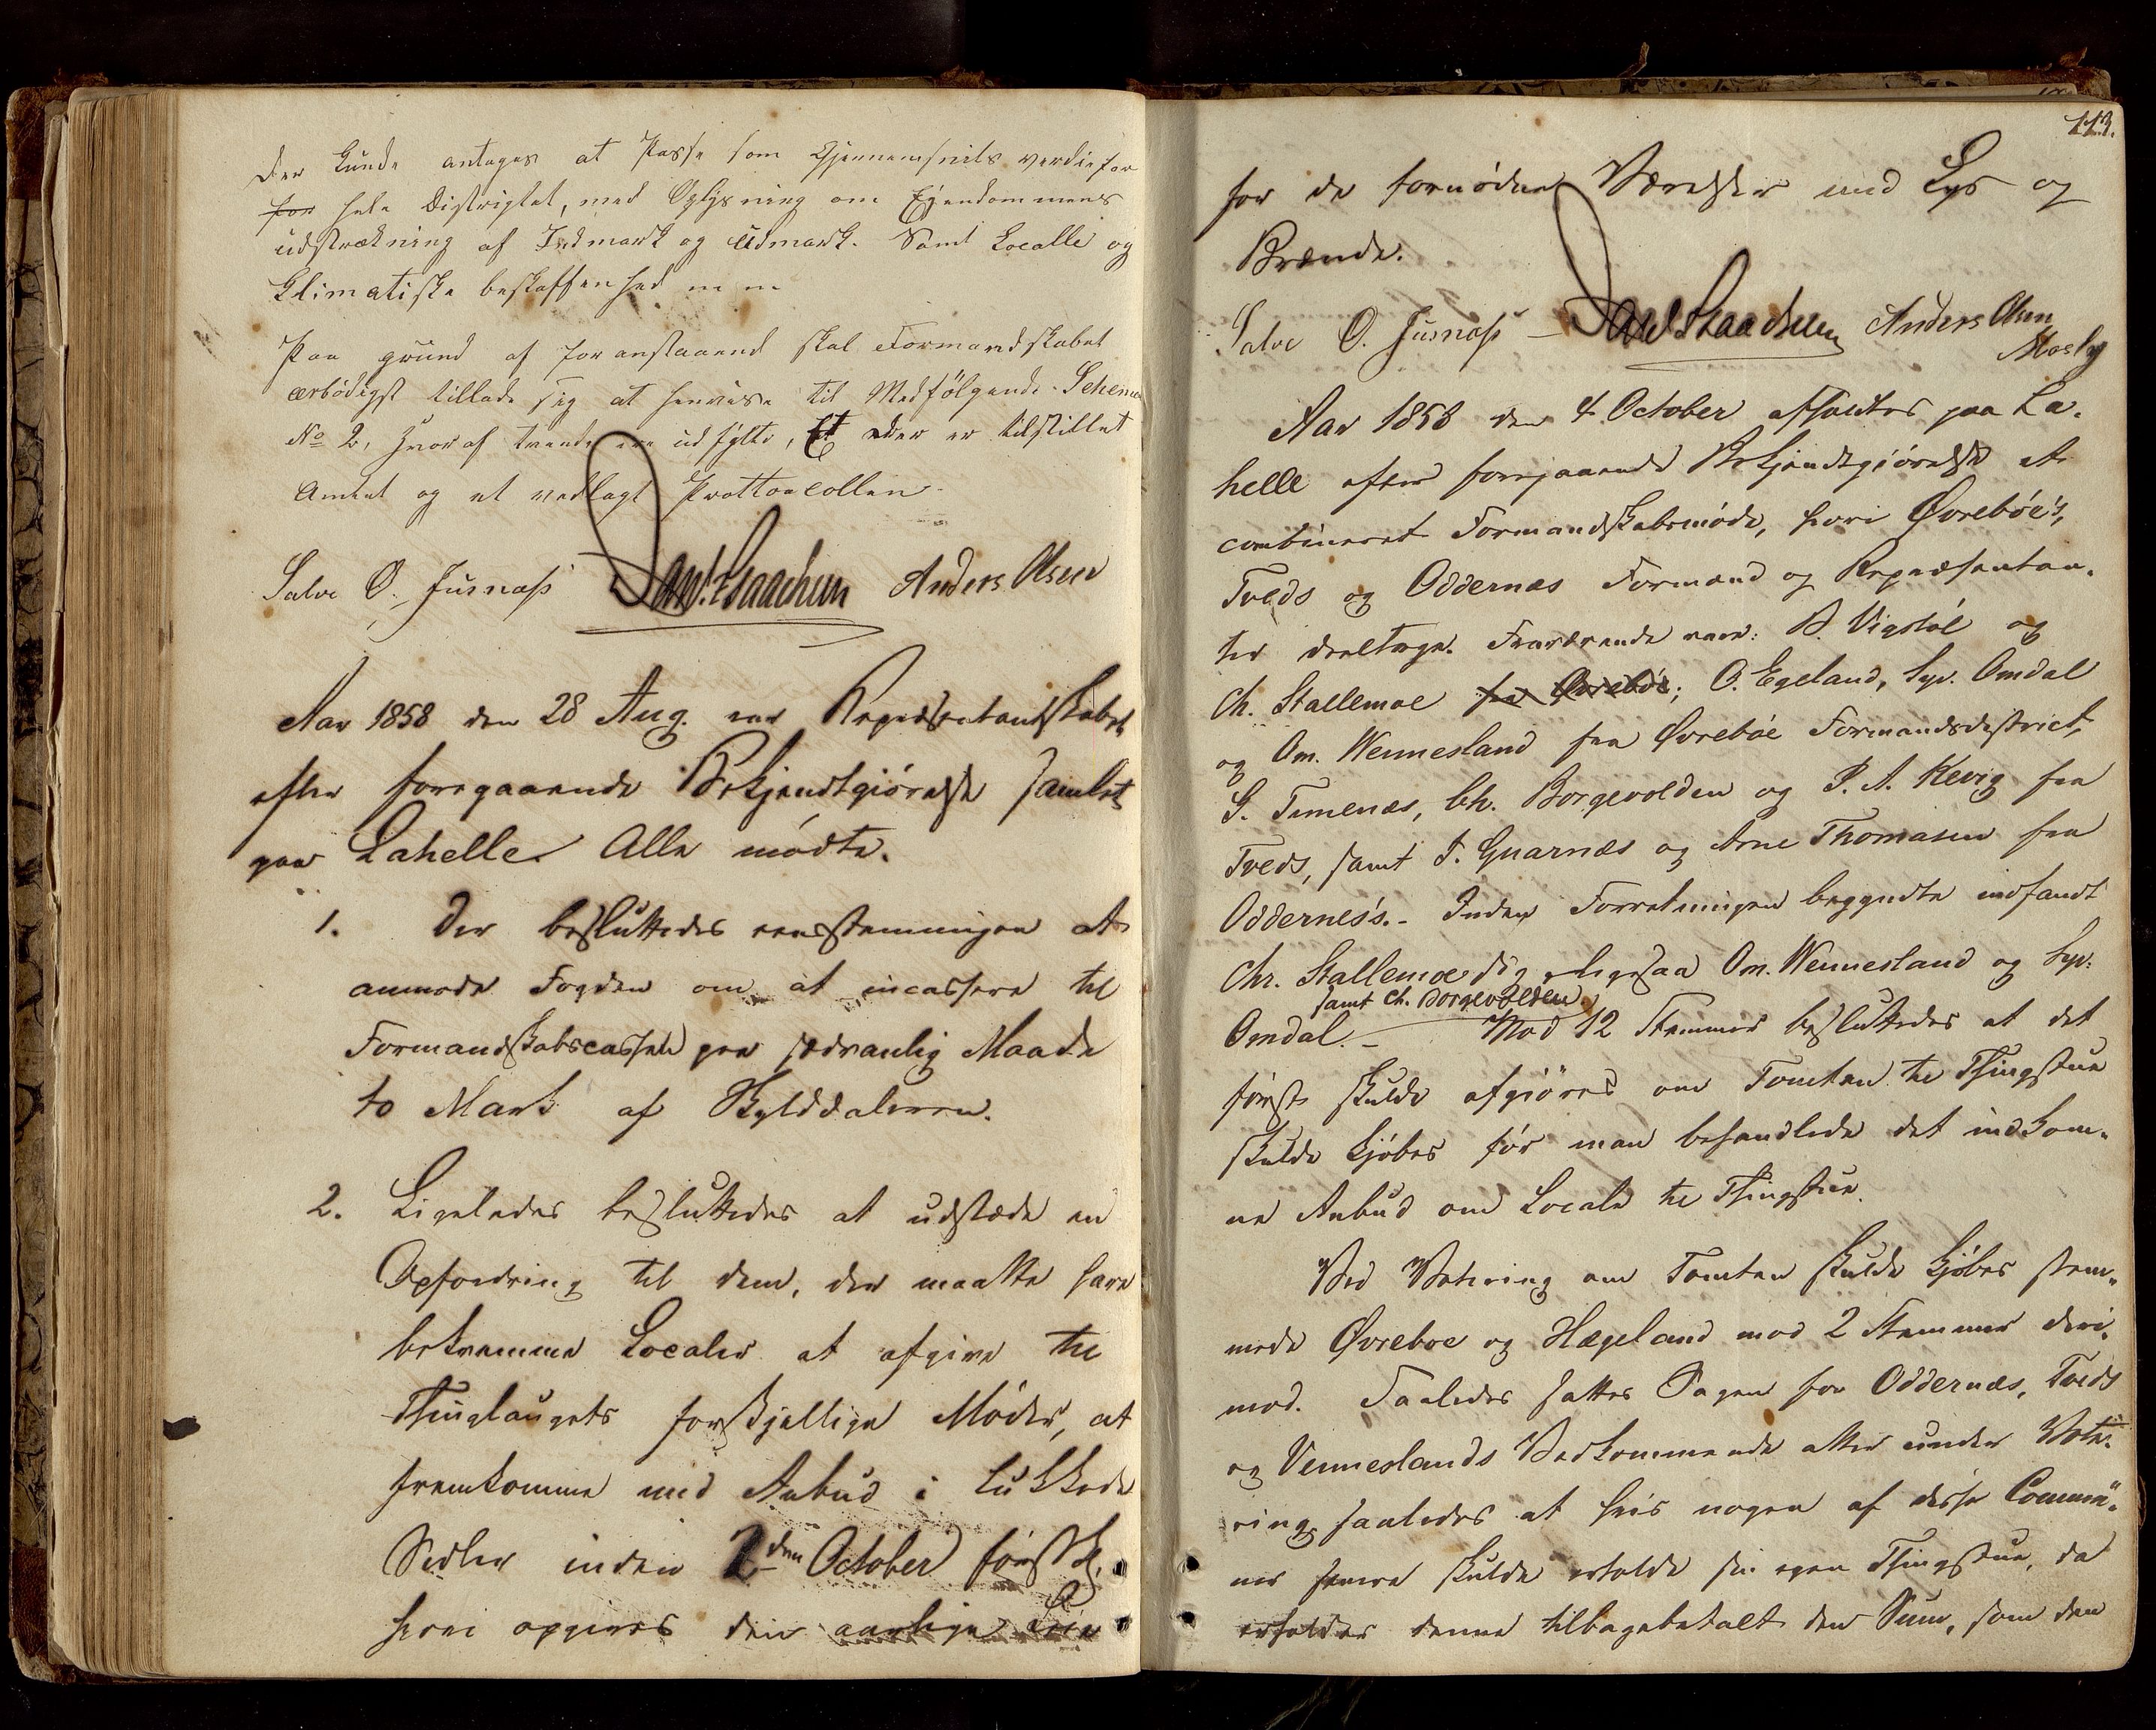 der kunde antages at Passe som Gjennemsnits verdie for
for hele Distrigtet, med Oplysning om Ejendommens
udstrækning af Indmark og Udmark. Samt Localle og
Klimatiske beskaffenhed m m
Paa grund af foranstaaend skal Formandskabet
ærbödigst tillade sig at henvise til Medfölgende Schema
No 2, hvoraf trende ere udfylte, Et eder er tilstillet
Amtet og et vedlagt Prottocollen
Salve O. Jusnæss Dan. Isaachsen Anders Olsen
Aar 1858 den 28 Aug. var Repræsentantskabet
efter foregaaende Bekjendtgiörelse samlet
paa Lahelle. Alle mödte.
1. Der besluttedes eenstemmigen at
anmode Fogden om at incassere til
Formandskabscassen paa sædvanlig Maade
to Mark af Skylddaleren.
2. Ligeledes besluttedes at udstæde en
Opfordring til dem, der maatte have
beqvemme Localer at afgive til
Thinglaugets forskjellige Möder, at
fremkomme med Anbud i lukkede
Sedler inden 2den October förstk.
hvori opgives den aarlige Leie
113.
for de fornödne Værelser med Lys og
Brænde.
Salve O. Jusnæss - Dan. Isaachsen Anders Olsen
Mosby
Aar 1858 den 4 October afholdtes paa La-
helle efter foregaaende Bekjendtgiörelse et
combineret Formandskabsmöde, hvori Øvrebøe's,
Tveds og Oddernæs Formænd og Repræsentan-
ter deeltoge. Fraværende vare: B. Vigstöl og
Ch. Stallemoe fra Øvrebøe; O. Egeland, Syv. Omdal
og Om. Wennesland fra Øvrebøe Formandsdistrict,
G. Timenæs, Ch. Borgevolden og P. A. Kevig fra
Tveds, samt J. Gnarnæs og Arne Thomasen fra
Oddernes's. - Inden Forretningen begyndte indfandt
Chr. Stallemoe sig, ligesaa Om. Wennesland og Syv.
samt Ch. Borgevolden
Omdal. - Mod 12 Stemmer besluttedes at det
först skulde afgiöres om Tomten til Thingstue
skulde kjöbes för man behandlede det indkom-
ne Anbud om Locale til Thingstue.
Ved Votering om Tomten skulde kjöbes stem-
mede Øvreboe og Hægeland mod 2 Stemmer deri-
mod. Saaledes sattes Sagen for Oddernæs, Tveds
og Venneslands Vedkommende atter under Vote-
ring saaledes at hvis nogen af disse Commu-
ner senere skulde erholde sin egen Thingstue, da
erholder denne tilbagebetalt den Sum, som den